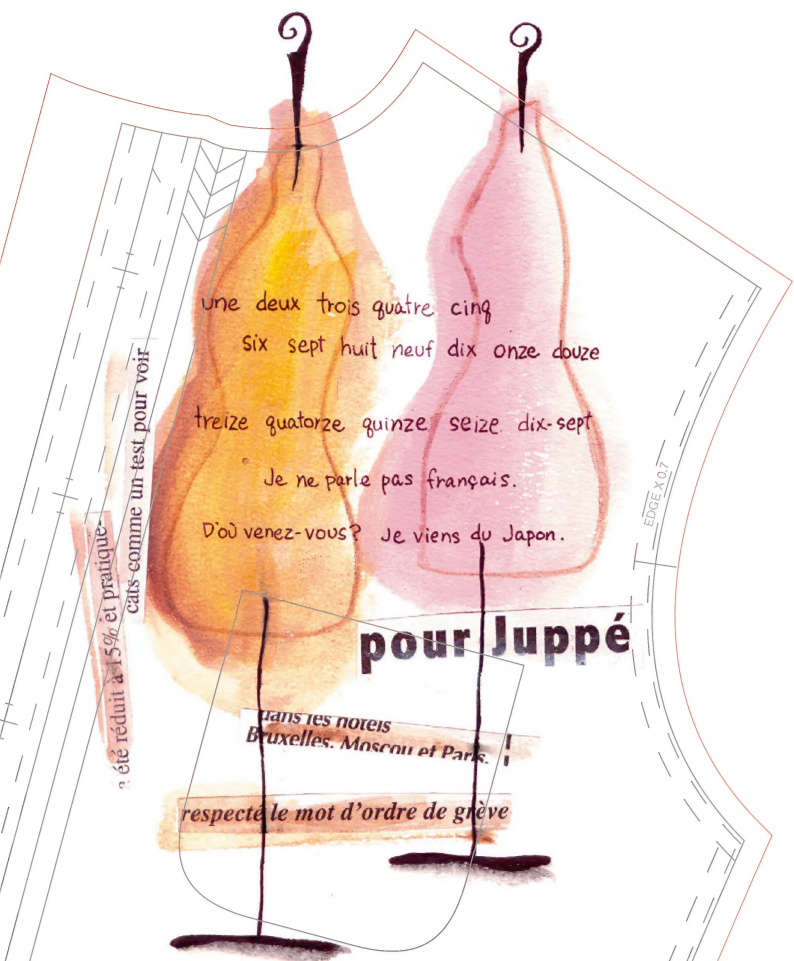 une deux trois quatre cinq
six sept huit neuf dix onze douze
treize quatorze quinze seize dix-sept
Je ne parle pas français.
D'où venez-vous? Je viens du Japon.
cats comme un test pour voir
a été réduit à 15% et pratique-
EDGE X 0.7
pour Juppé
dans les hotels
Bruxelles, Moscou et Paris.
respecté le mot d'ordre de grève